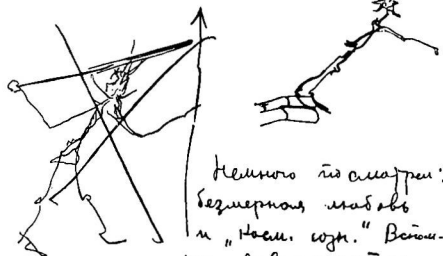 Немного посмотрел:
безмерная любовь
и „косм. созн." Вспом-